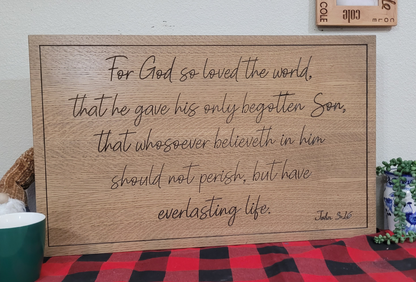 COLE
cole
COLE
For God so loved the world,
that he gave his only begotten Son,
that whosoever believeth in him
should not perish, but have
everlasting life.
John 3:16